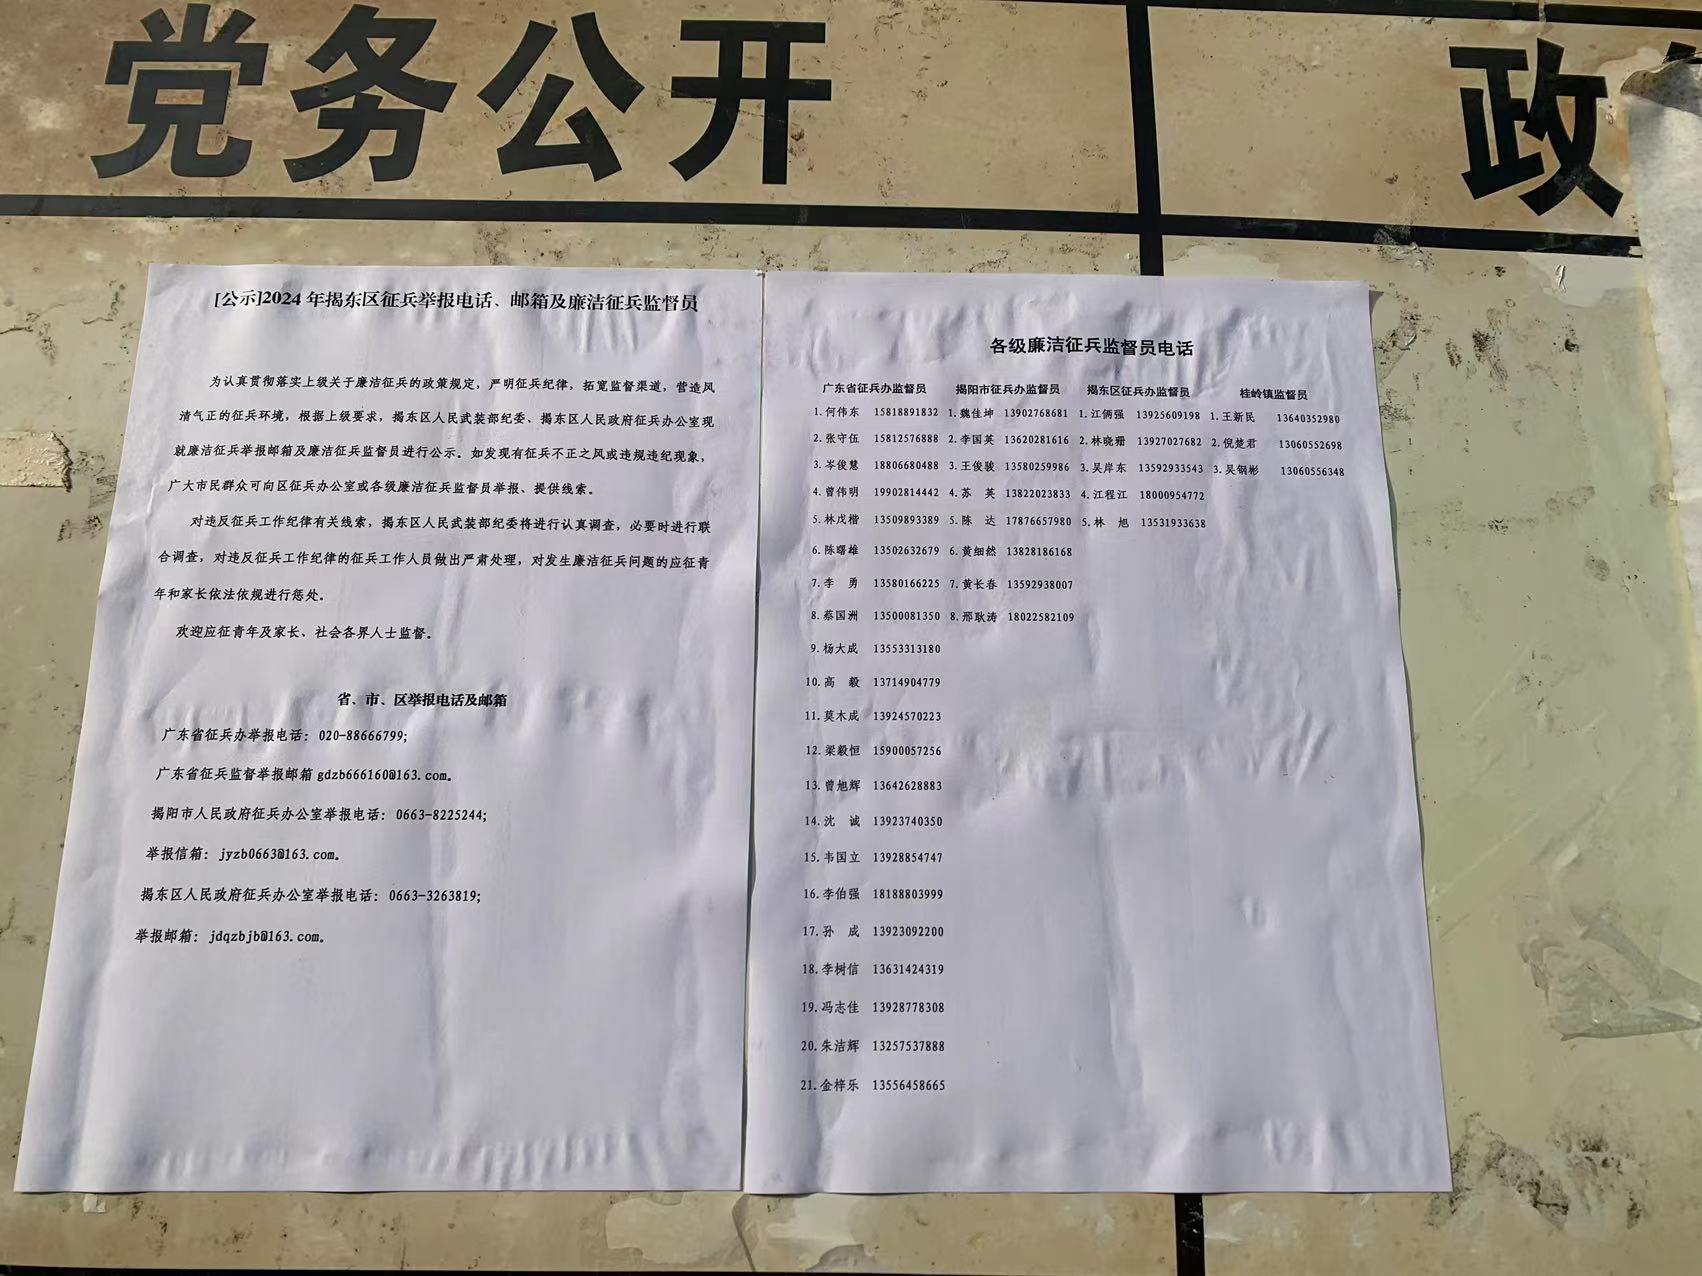 党务公开
政
[公示]2024年揭东区征兵举报电话、邮箱及廉洁征兵监督员
为认真贯彻落实上级关于廉洁征兵的政策规定，严明征兵纪律，拓宽监督渠道，营造风
清气正的征兵环境，根据上级要求，揭东区人民武装部纪委、揭东区人民政府征兵办公室现
就廉洁征兵举报邮箱及廉洁征兵监督员进行公示。如发现有征兵不正之风或违规违纪现象，
广大市民群众可向区征兵办公室或各级廉洁征兵监督员举报、提供线索。
对违反征兵工作纪律有关线索，揭东区人民武装部纪委将进行认真调查，必要时进行联
合调查，对违反征兵工作纪律的征兵工作人员做出严肃处理，对发生廉洁征兵问题的应征青
年和家长依法依规进行惩处。
欢迎应征青年及家长、社会各界人士监督。
省、市、区举报电话及邮箱
广东省征兵办举报电话：020-88666799;
广东省征兵监督举报邮箱gdzb666160@163.com。
揭阳市人民政府征兵办公室举报电话：0663-8225244;
举报信箱：jyzb0663@163.com。
揭东区人民政府征兵办公室举报电话：0663-3263819;
举报邮箱：jdqzbjb@163.com。
各级廉洁征兵监督员电话
广东省征兵办监督员 揭阳市征兵办监督员 揭东区征兵办监督员 桂岭镇监督员
1.何伟东 15818891832 1.魏佳坤 13902768681 1.江俩强 13925609198 1.王新民 13640352980
2.张守伍 15812576888 2.李国英 13620281616 2.林晓珊 13927027682 2.倪楚君 13060552698
3.岑俊慧 18806680488 3.王俊骏 13580259986 3.吴岸东 13592933543 3.吴钢彬 13060556348
4.曾伟明 19902814442 4.苏 英 13822023833 4.江程江 18000954772
5.林戊楷 13509893389 5.陈 达 17876657980 5.林 旭 13531933638
6.陈曙雄 13502632679 6.黄细然 13828186168
7.李 勇 13580166225 7.黄长春 13592938007
8.蔡国洲 13500081350 8.邢耿涛 18022582109
9.杨大成 13553313180
10.高 毅 13714904779
11.莫木成 13924570223
12.梁毅恒 15900057256
13.曾旭辉 13642628883
14.沈 诚 13923740350
15.韦国立 13928854747
16.李伯强 18188803999
17.孙 成 13923092200
18.李树信 13631424319
19.冯志佳 13928778308
20.朱洁辉 13257537888
21.金梓乐 13556458665